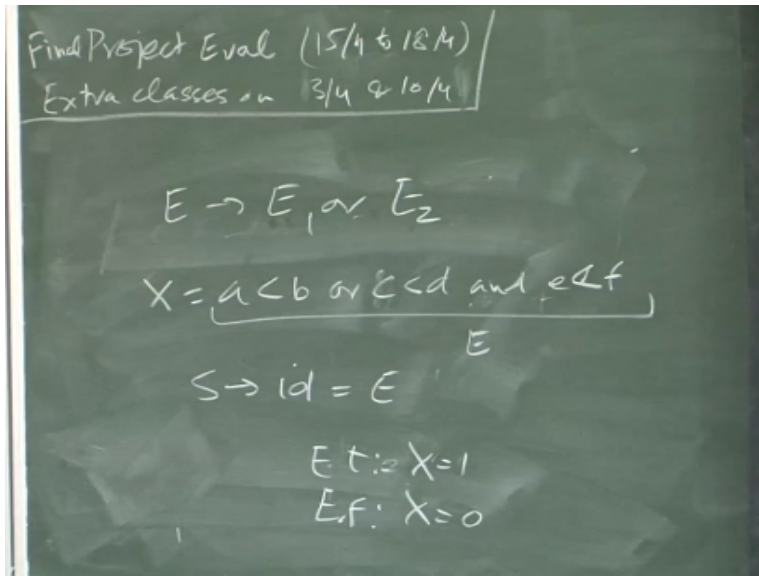 Final Project Eval (15/4 to 18/4)
Extra classes on 3/4 & 10/4
E → E₁ or E₂
X = a<b or c<d and e<f
E
S → id = E
E.t: X=1
E.f: X=0